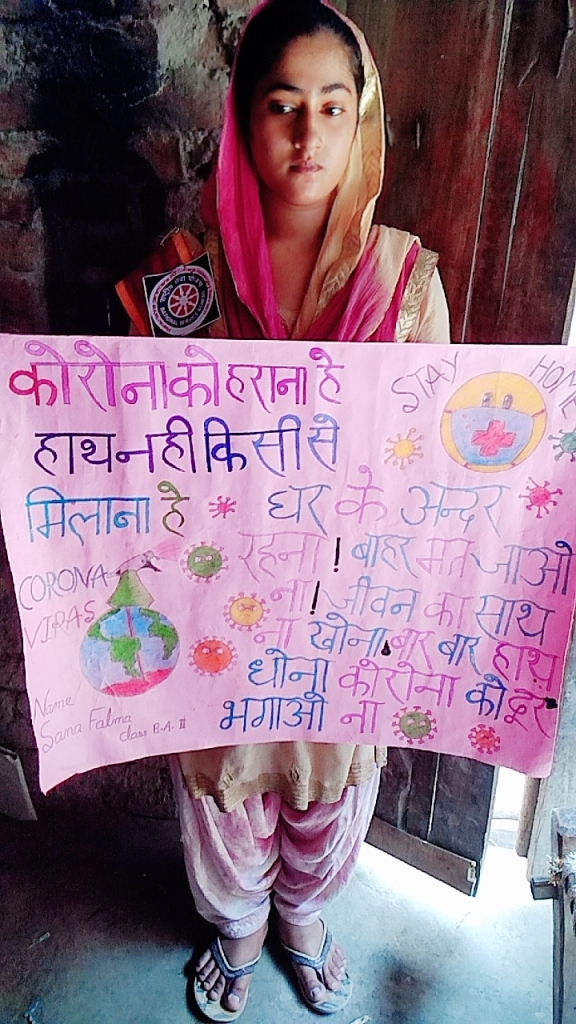 कोरोना को हराना है
हाथ नही किसी से
मिलाना है
STAY HOME
घर के अन्दर
रहना! बाहर मत जाओ
ना! जीवन का साथ
ना खोना! बार बार हाथ
धोना कोरोना को दूर
भगाओ ना
CORONA
VIRAS
Name
Sana Fatma
class B.A. II